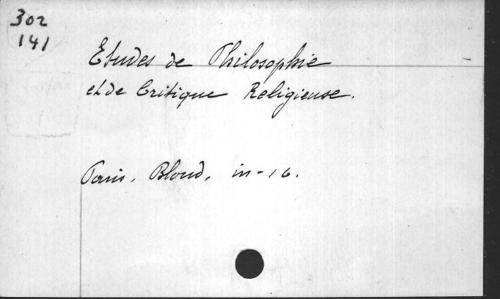 302
141
Etudes de Philosophie
et de Critique Religieuse.
Paris, Bloud, in-16.